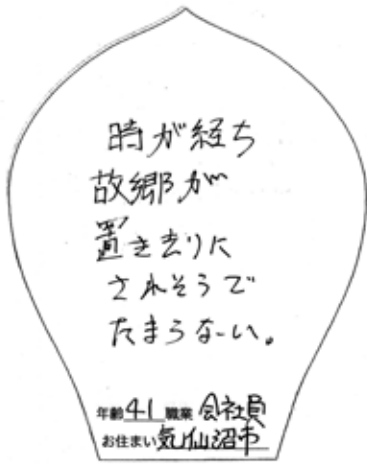 時が経ち
故郷が
置き去りに
されそうで
たまらない。
年齢 41 職業 会社員
お住まい 気仙沼市